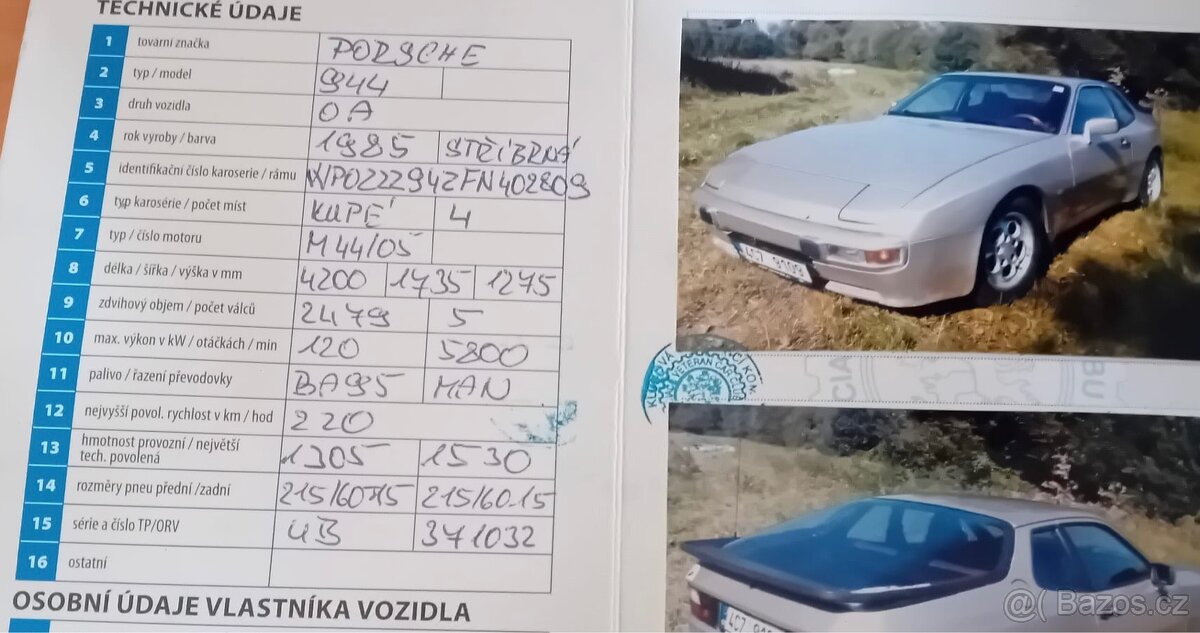 TECHNICKÉ ÚDAJE
1 tovarní značka PORSCHE
2 typ / model 944
3 druh vozidla OA
4 rok vyroby / barva 1985 STŘÍBRNÁ
5 identifikační číslo karoserie / rámu WP0ZZZ94ZFN402809
6 typ karosérie / počet míst KUPÉ 4
7 typ / číslo motoru M44/05
8 délka / šířka / výška v mm 4200 1735 1275
9 zdvihový objem / počet válců 2479 5
10 max. výkon v kW / otáčkách / min 120 5800
11 palivo / řazení převodovky BA95 MAN
12 nejvyšší povol. rychlost v km / hod 220
13 hmotnost provozní / největší
tech. povolená 1305 1530
14 rozměry pneu přední /zadní 215/60-15 215/60-15
15 série a číslo TP/ORV UB 371032
16 ostatní
OSOBNÍ ÚDAJE VLASTNÍKA VOZIDLA
4C7 9109
VETERAN CAR CLUB
4C7
@( Bazos.cz